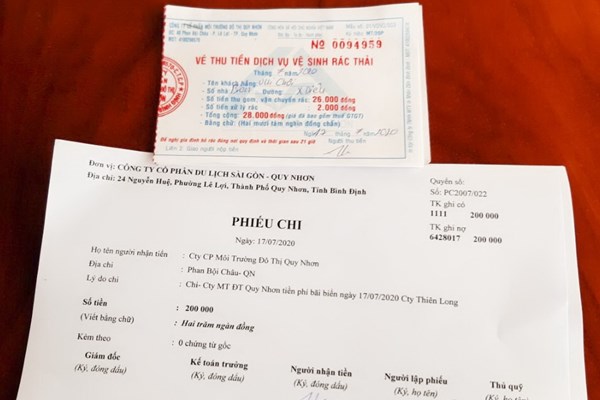 CÔNG TY CỔ PHẦN MÔI TRƯỜNG ĐÔ THỊ QUY NHƠN
ĐC: 40 Phan Bội Châu, P. Lê Lợi, TP. Quy Nhơn
Nº 0094959
VÉ THU TIỀN DỊCH VỤ VỆ SINH RÁC THẢI
Tháng 7 năm 2020
- Tên khách hàng:
- Số nhà Đường:
- Số tiền thu gom, vận chuyển rác: 26.000 đồng
- Số tiền xử lý rác 2.000 đồng
- Tổng cộng: 28.000 đồng (giá đã bao gồm thuế GTGT)
- Bằng chữ: (Hai mươi tám nghìn đồng chẵn)
Ngày 17 tháng 7 năm 2020
Đề nghị gia đình bỏ rác đúng nơi quy định và thời gian sau 21 giờ
Liên 2: Giao người nộp tiền
Đơn vị: CÔNG TY CỔ PHẦN DU LỊCH SÀI GÒN - QUY NHƠN
Địa chỉ: 24 Nguyễn Huệ, Phường Lê Lợi, Thành Phố Quy Nhơn, Tỉnh Bình Định
Quyển số:
Số: PC2007/022
TK ghi có
1111 200 000
TK ghi nợ
6428017 200 000
PHIẾU CHI
Ngày: 17/07/2020
Họ tên người nhận tiền : Cty CP Môi Trường Đô Thị Quy Nhơn
Địa chỉ : Phan Bội Châu- QN
Lý do chi : Chi- Cty MT ĐT Quy Nhơn tiền phí bãi biển ngày 17/07/2020 Cty Thiên Long
Số tiền : 200 000
(Viết bằng chữ) : Hai trăm ngàn đồng
Kèm theo : 0 chứng từ gốc
Giám đốc Kế toán trưởng Người nhận tiền Người lập phiếu Thủ quỹ
(Ký, đóng dấu) (Ký, đóng dấu) (Ký, đóng dấu) (Ký, họ tên) (Ký, họ tên)